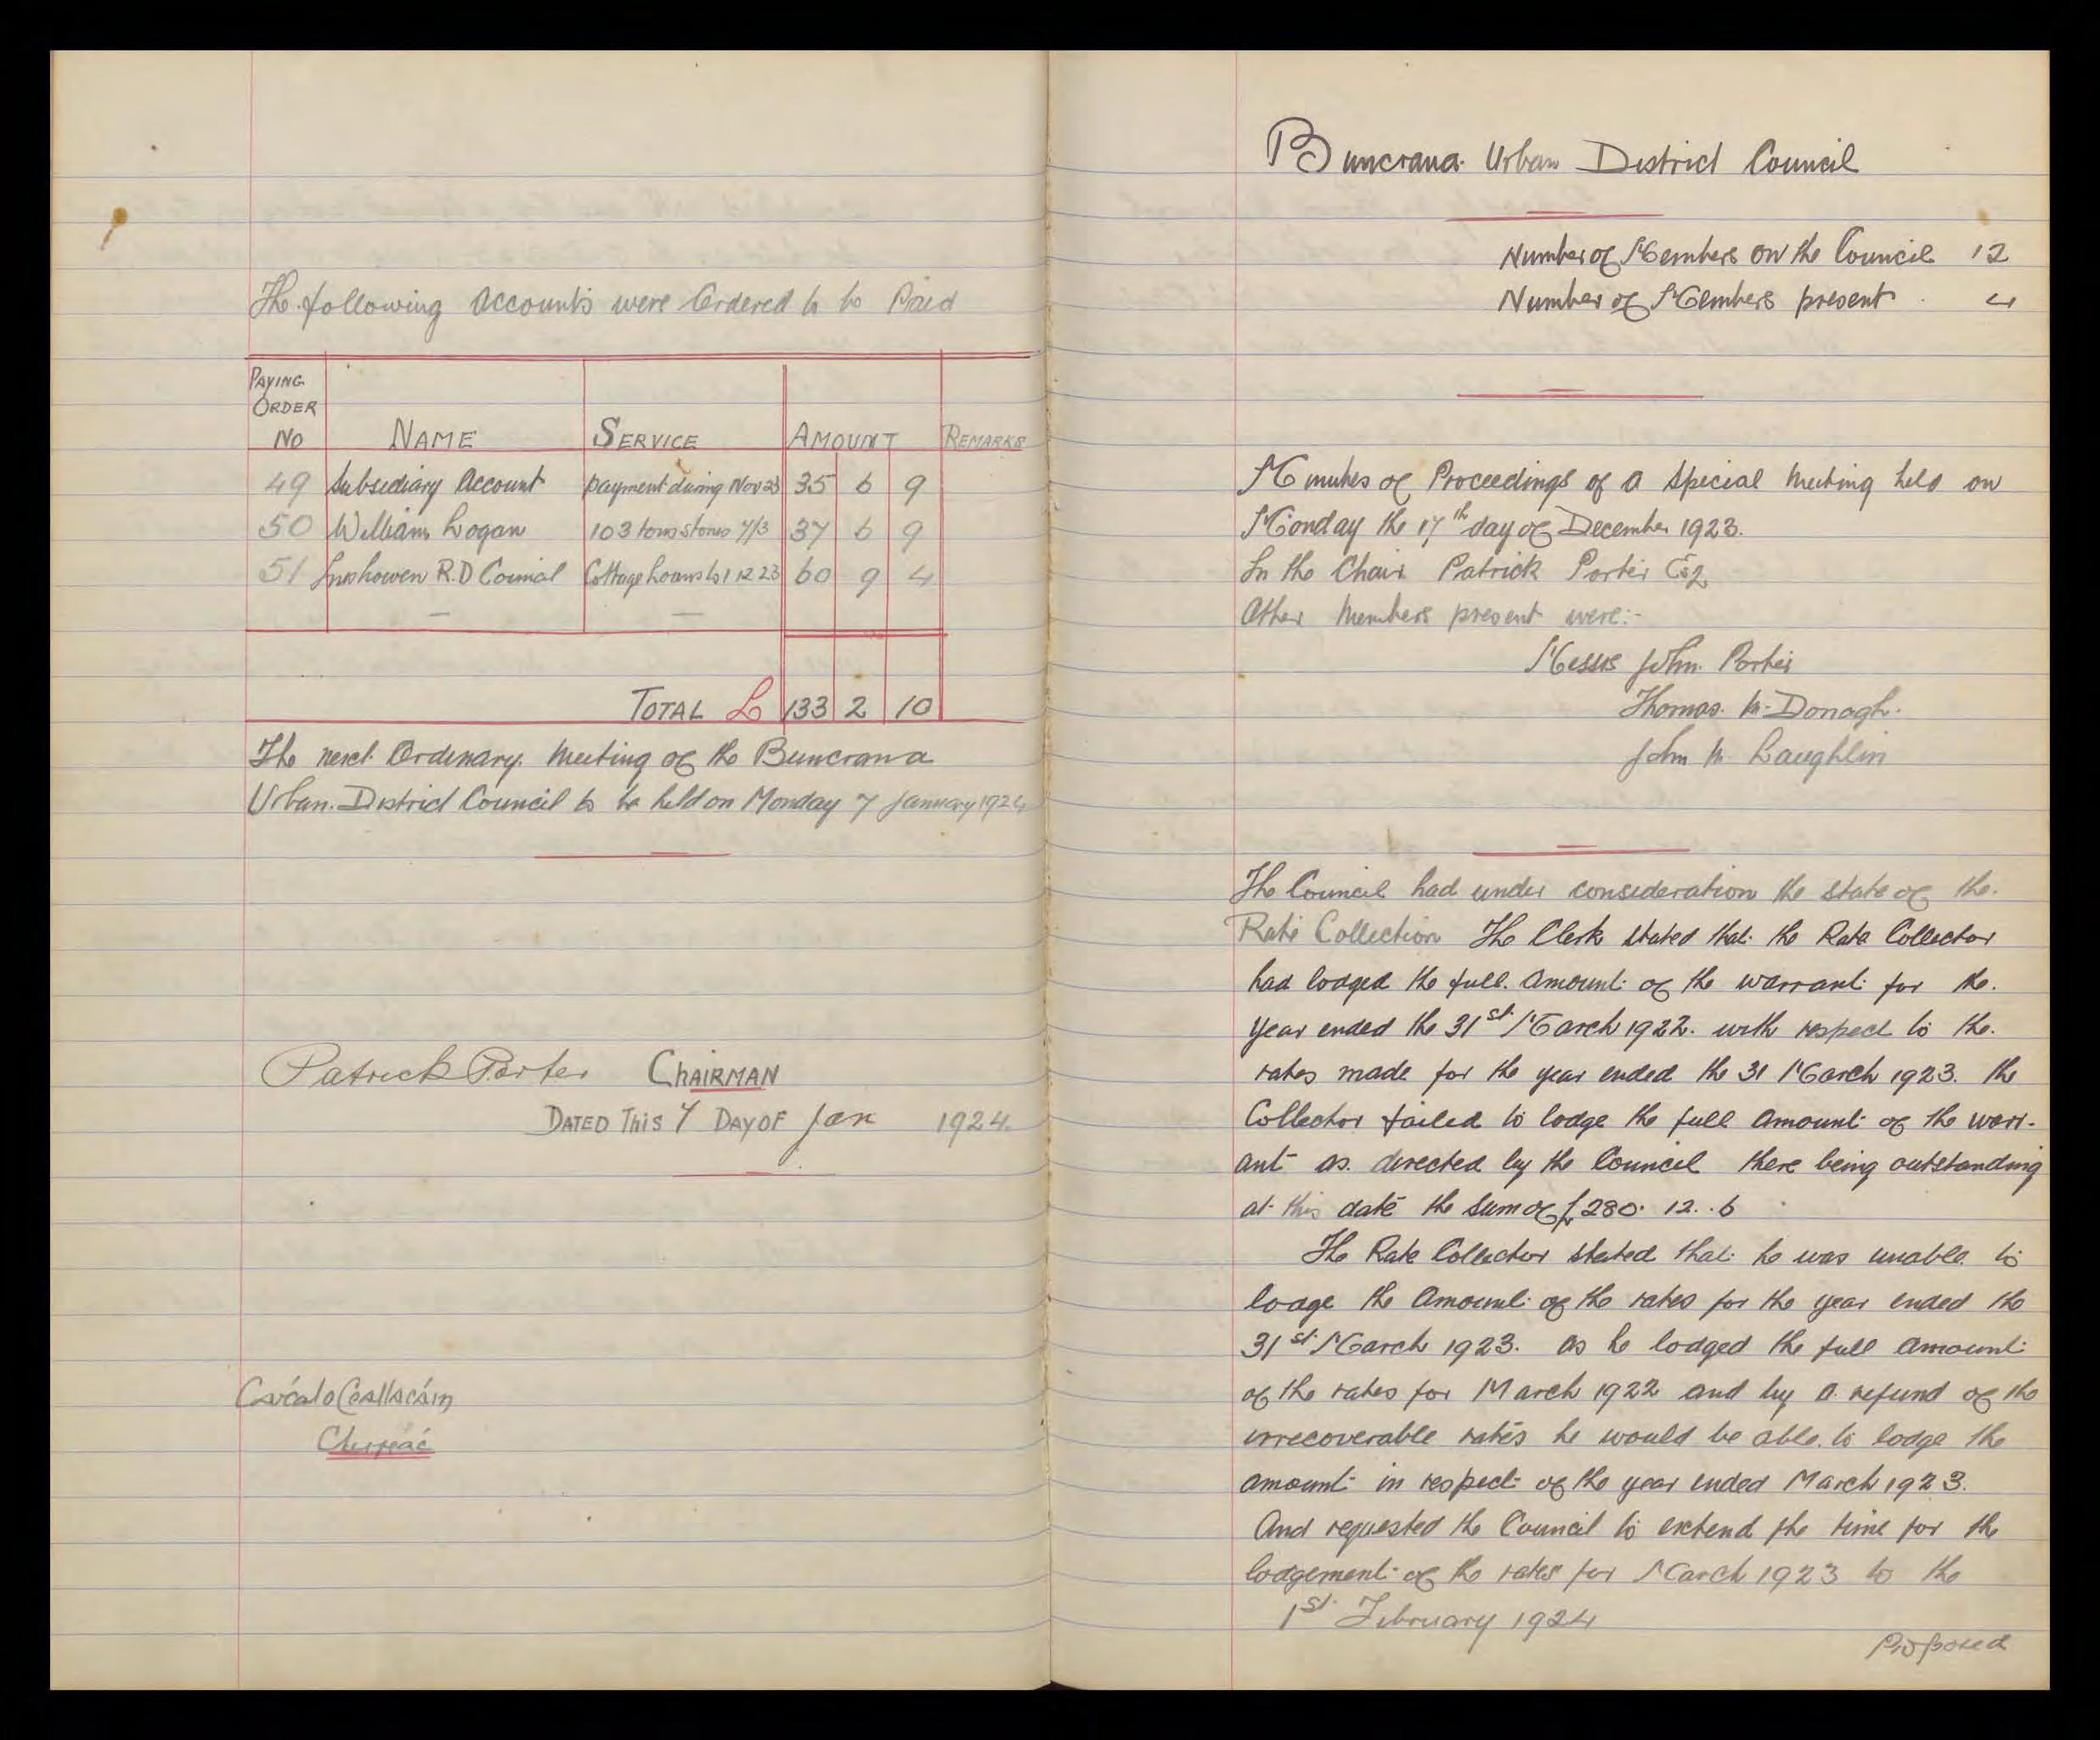 The following accounts were Ordered to be Paid
PAYING
ORDER
No NAME SERVICE AMOUNT REMARKS
49 Subsidiary Account payment during Nov 23 35 6 9
50 William Logan 103 tons stones 7/3 37 6 9
51 Inishowen R.D Council Cottage Loans to 1 12 23 60 9 4
TOTAL £ 133 2 10
The next Ordinary Meeting of the Buncrana
Urban District Council to be held on Monday 7 January 1924
Patrick Porter CHAIRMAN
DATED THIS 7 DAY OF Jan 1924.
Buncrana Urban District Council
Number of Members on the Council 12
Number of Members present 4
Minutes of Proceedings of a Special Meeting held on
Monday the 17th day of December 1923.
In the Chair Patrick Porter Esq
Other Members present were:-
Messrs John Porter
Thomas McDonagh.
John McLaughlin
The Council had under consideration the state of the
Rate Collection The Clerk stated that the Rate Collector
had lodged the full amount of the warrant for the
year ended the 31st March 1922. with respect to the
rates made for the year ended the 31 March 1923. the
Collector failed to lodge the full amount of the warr-
ant as directed by the Council there being outstanding
at this date the sum of £280. 12. 6
The Rate Collector stated that he was unable to
lodge the amount of the rates for the year ended the
31st March 1923. as he lodged the full amount
of the rates for March 1922 and by a refund of the
irrecoverable rates he would be able to lodge the
amount in respect of the year ended March 1923.
And requested the Council to extend the time for the
lodgement of the rates for March 1923 to the
1st February 1924
Proposed